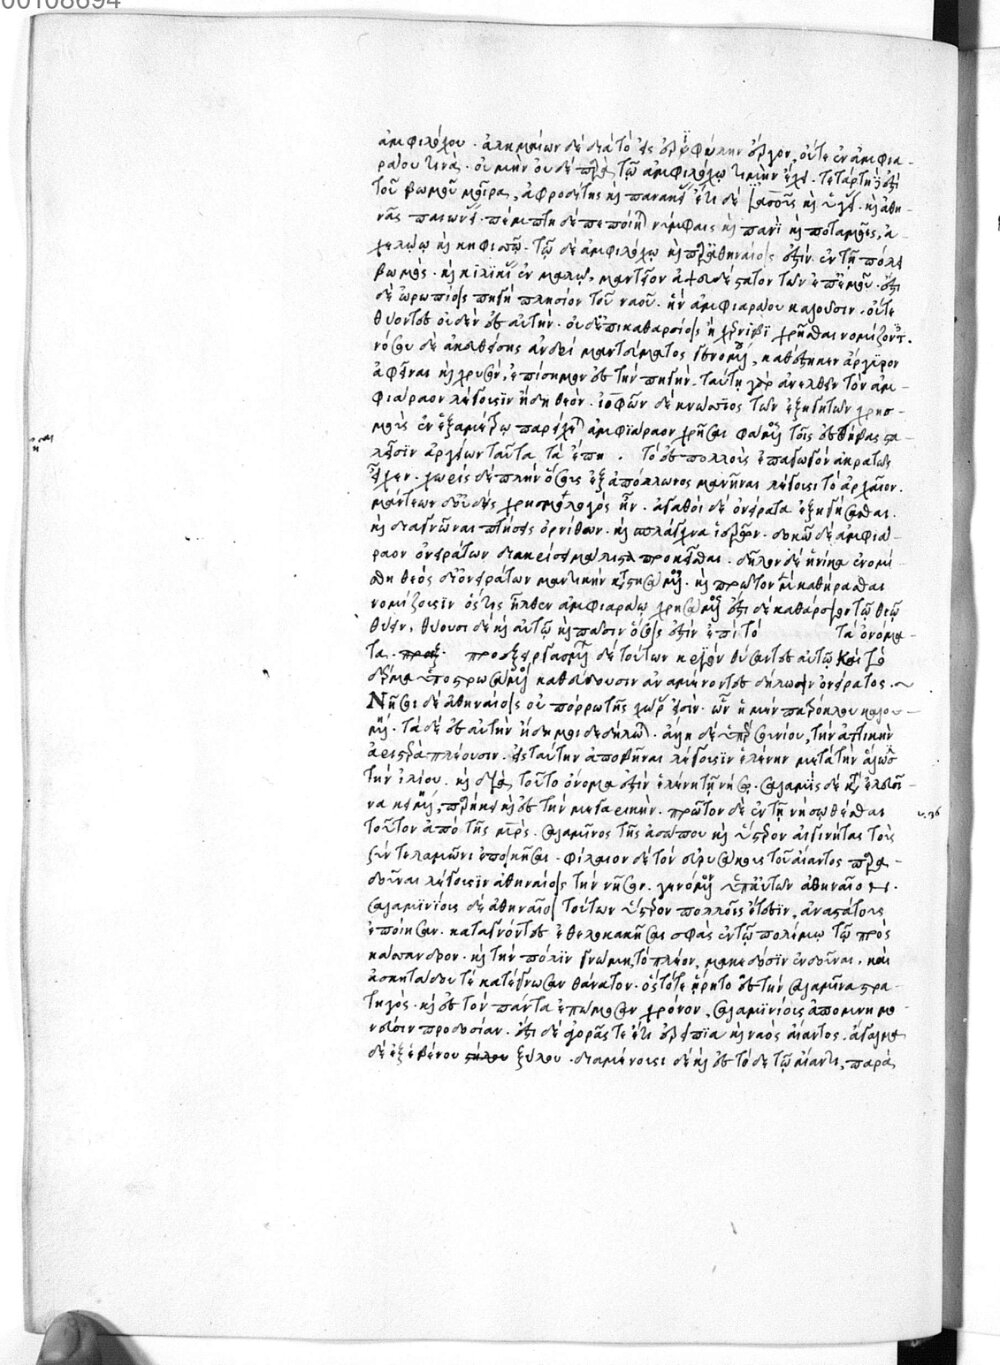 00108694
ἀμφιλόχου. ἀλκμαίων δὲ διὰ τὸ ἐς ἐριφύλην ἔργον, οὔτε ἐν ἀμφια-
ράου τινὰ. οὐ μὴν οὐδὲ παρὰ τῷ ἀμφιλόχῳ τιμὴν ἔχει. τετάρτη δέ ἐστι
τοῦ βωμοῦ μοῖρα, ἀφροδίτης καὶ πανακείας ἔτι δὲ ἰασοῦς καὶ ὑγείας. καὶ ἀθη-
νᾶς παιωνίας. πέμπτη δὲ πεποίηται νύμφαις καὶ πανὶ καὶ ποταμοῖς, ἀ-
χελώῳ καὶ κηφισῷ. τῷ δὲ ἀμφιλόχῳ καὶ παρ' ἀθηναίοις ἐστὶν ἐν τῇ πόλει
βωμὸς. καὶ κιλικίας ἐν μαλλῷ, μαντεῖον ἀψευδέστατον τῶν ἐπ' ἐμοῦ. ἔστι
δὲ ὠρωπίοις πηγὴ πλησίον τοῦ ναοῦ. ἣν ἀμφιαράου καλοῦσιν. οὔτε
θύοντες οὐδὲν ἐς αὐτὴν. οὐδ' ἐπὶ καθαρσίοις ἢ χέρνιβι χρῆσθαι νομίζοντες.
νόσου δὲ ἀκεσθείσης ἀνδρὶ μαντεύματος γενομένου, καθέστηκεν ἄργυρον
ἀφεῖναι καὶ χρυσὸν, ἐπίσημον ἐς τὴν πηγὴν. ταύτῃ γὰρ ἀνελθεῖν τὸν ἀμ-
φιάραον λέγουσιν ἤδη θεὸν. ἰοφῶν δὲ κνώσσιος τῶν ἐξηγητῶν χρησ-
μοὺς ἐν ἑξαμέτρῳ παρέχεται ἀμφιάραον χρῆσαι φάμενος τοῖς ἐς θήβας στα-
λεῖσιν ἀργείων ταῦτα τὰ ἔπη. τὸ ἐς πολλοὺς ἐπαγωγὸν ἀκρατῶς
εἶχεν. χωρὶς δὲ πλὴν ὅσους ἐξ ἀπόλλωνος μανῆναι λέγουσι τὸ ἀρχαῖον.
μάντεων οὐδεὶς χρησμολόγος ἦν. ἀγαθοὶ δὲ ὀνείρατα ἐξηγήσασθαι.
καὶ διαγνῶναι πτήσεις ὀρνίθων. καὶ σπλάγχνα ἱερείων. δοκῶ δὲ ἀμφιά-
ραον ὀνειράτων διακρίσει μάλιστα προκεῖσθαι. δῆλον δὲ ἡνίκα ἐνομί-
σθη θεὸς δι' ὀνειράτων μαντικὴν καταστησάμενος. καὶ πρῶτον μὲν καθήρασθαι
νομίζουσιν ὅστις ἦλθεν ἀμφιαράῳ χρησόμενος ἔστι δὲ καθάρσιον τῷ θεῷ
θύειν. θύουσι δὲ καὶ αὐτῷ καὶ πᾶσιν ὅσοις ἐστὶν ἐπὶ τὸ τὰ ὀνόμα-
τα. προεξειργασμένων δὲ τούτων κριὸν θύσαντες αὐτῷ καὶ τὸ
δέρμα ὑποστρωσάμενοι καθεύδουσιν ἀναμένοντες δήλωσιν ὀνείρατος.
Νῆσοι δὲ ἀθηναίοις οὐ πόρρω τῆς χώρας εἰσὶν. ὧν ἡ μὲν πατρόκλου καλου-
μένη. τὰ δὲ ἐς αὐτὴν ἤδη μοι δεδήλωται. ἄλλη δὲ ὑπὲρ σουνίου, τὴν ἀττικὴν
ἀριστερᾷ πλέουσιν. ἐς ταύτην ἀποβῆναι λέγουσιν ἑλένην μετὰ τὴν ἅλωσιν
τὴν ἰλίου. καὶ διὰ τοῦτο ὄνομα ἐστὶν ἑλένη τῇ νήσῳ. σαλαμὶς δὲ κατ' ἐλευσῖ-
να κειμένη, παρήκει καὶ ἐς τὴν μεγαρικὴν. πρῶτον δὲ ἐν τῇ νήσῳ θέσθαι
τοῦτον ἀπὸ τῆς μητρὸς. σαλαμῖνος τῆς ἀσωποῦ καὶ ὕστερον αἰγινῆται τοὺς
ξὺν τελαμῶνι ἐποικῆσαι. φίλαιον δὲ τὸν εὐρυσάκους τοῦ αἴαντος παρα-
δοῦναι λέγουσιν ἀθηναίοις τὴν νῆσον. γενόμενον ὑπ' αὐτῶν ἀθηναῖον.
σαλαμινίους δὲ ἀθηναῖοι τούτων ὕστερον πολλοῖς ἔτεσιν, ἀναστάτους
ἐποίησαν. καταγνόντες ἐθελοκακῆσαι σφᾶς ἐν τῷ πολέμῳ τῷ πρὸς
κάσσανδρον. καὶ τὴν πόλιν γνώμῃ τὸ πλέον, μακεδόσιν ἐνδοῦναι. καὶ
ἀσκητάδου τὲ κατέγνωσαν θάνατον. ὃς τότε ᾕρητο ἐς τὴν σαλαμῖνα στρα-
τηγὸς. καὶ ἐς τὸν πάντα ἐπώμοσαν χρόνον, σαλαμινίοις ἀπομνημο-
νεύσειν προδοσίαν. ἔστι δὲ ἀγορᾶς τε ἔτι ἐρείπια καὶ ναὸς αἴαντος. ἄγαλμα
δὲ ἐξ ἐβένου ξύλου. διαμένουσι δὲ καὶ ἐς τόδε τῷ αἴαντι, παρὰ